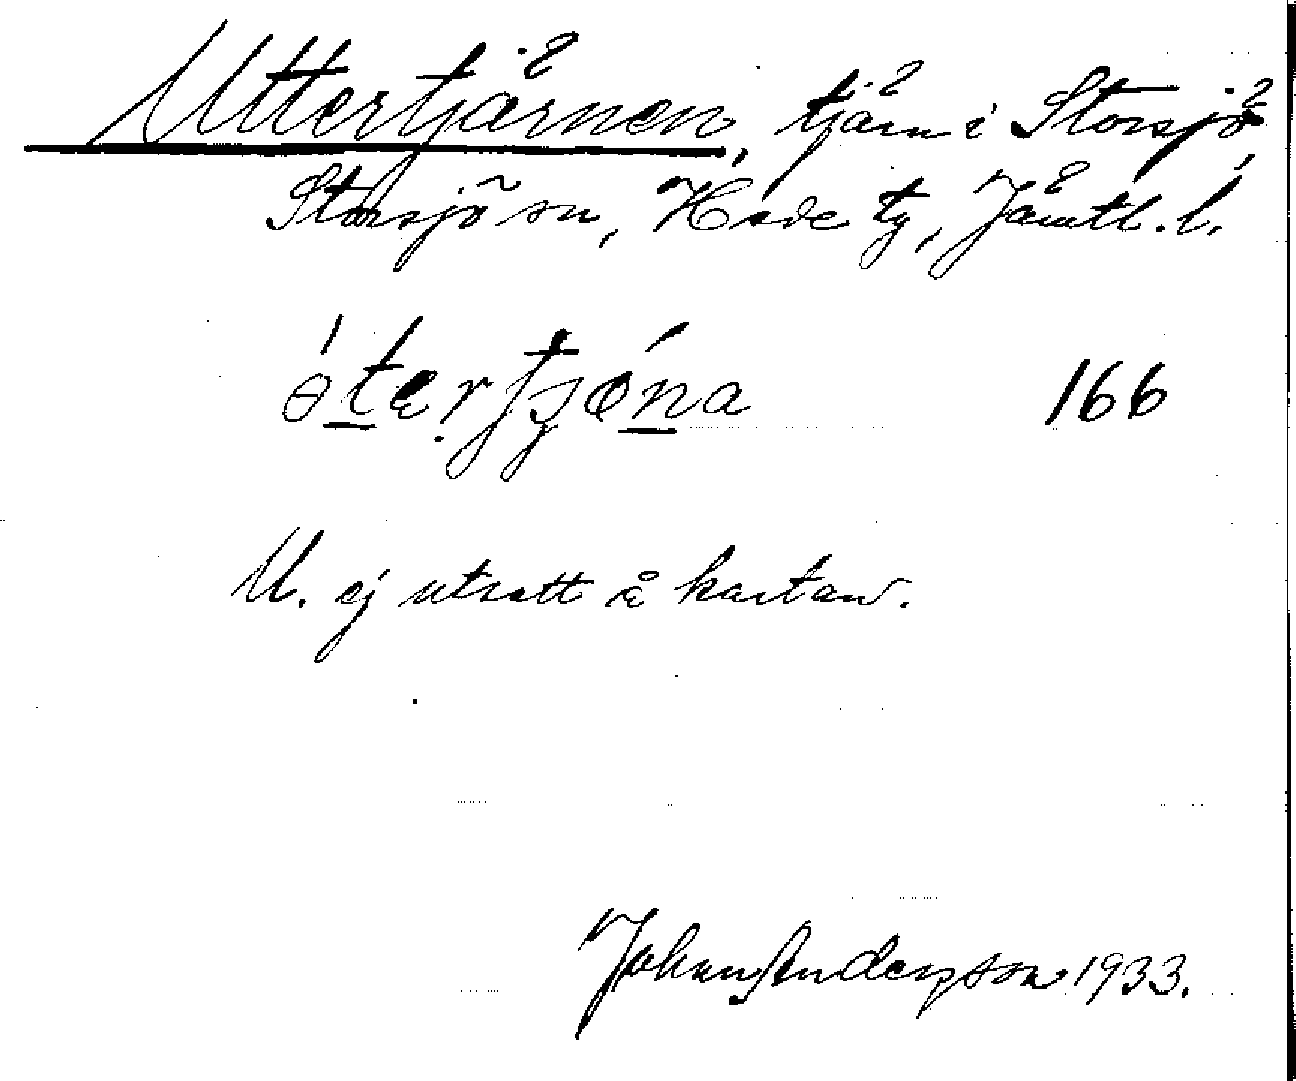 Uttertjärnen, tjärn i Storsjö,
Storsjö sn, Hede tg, Jämtl. l.
166
U. ej utsatt å kartan.
Johan Anderson 1933.